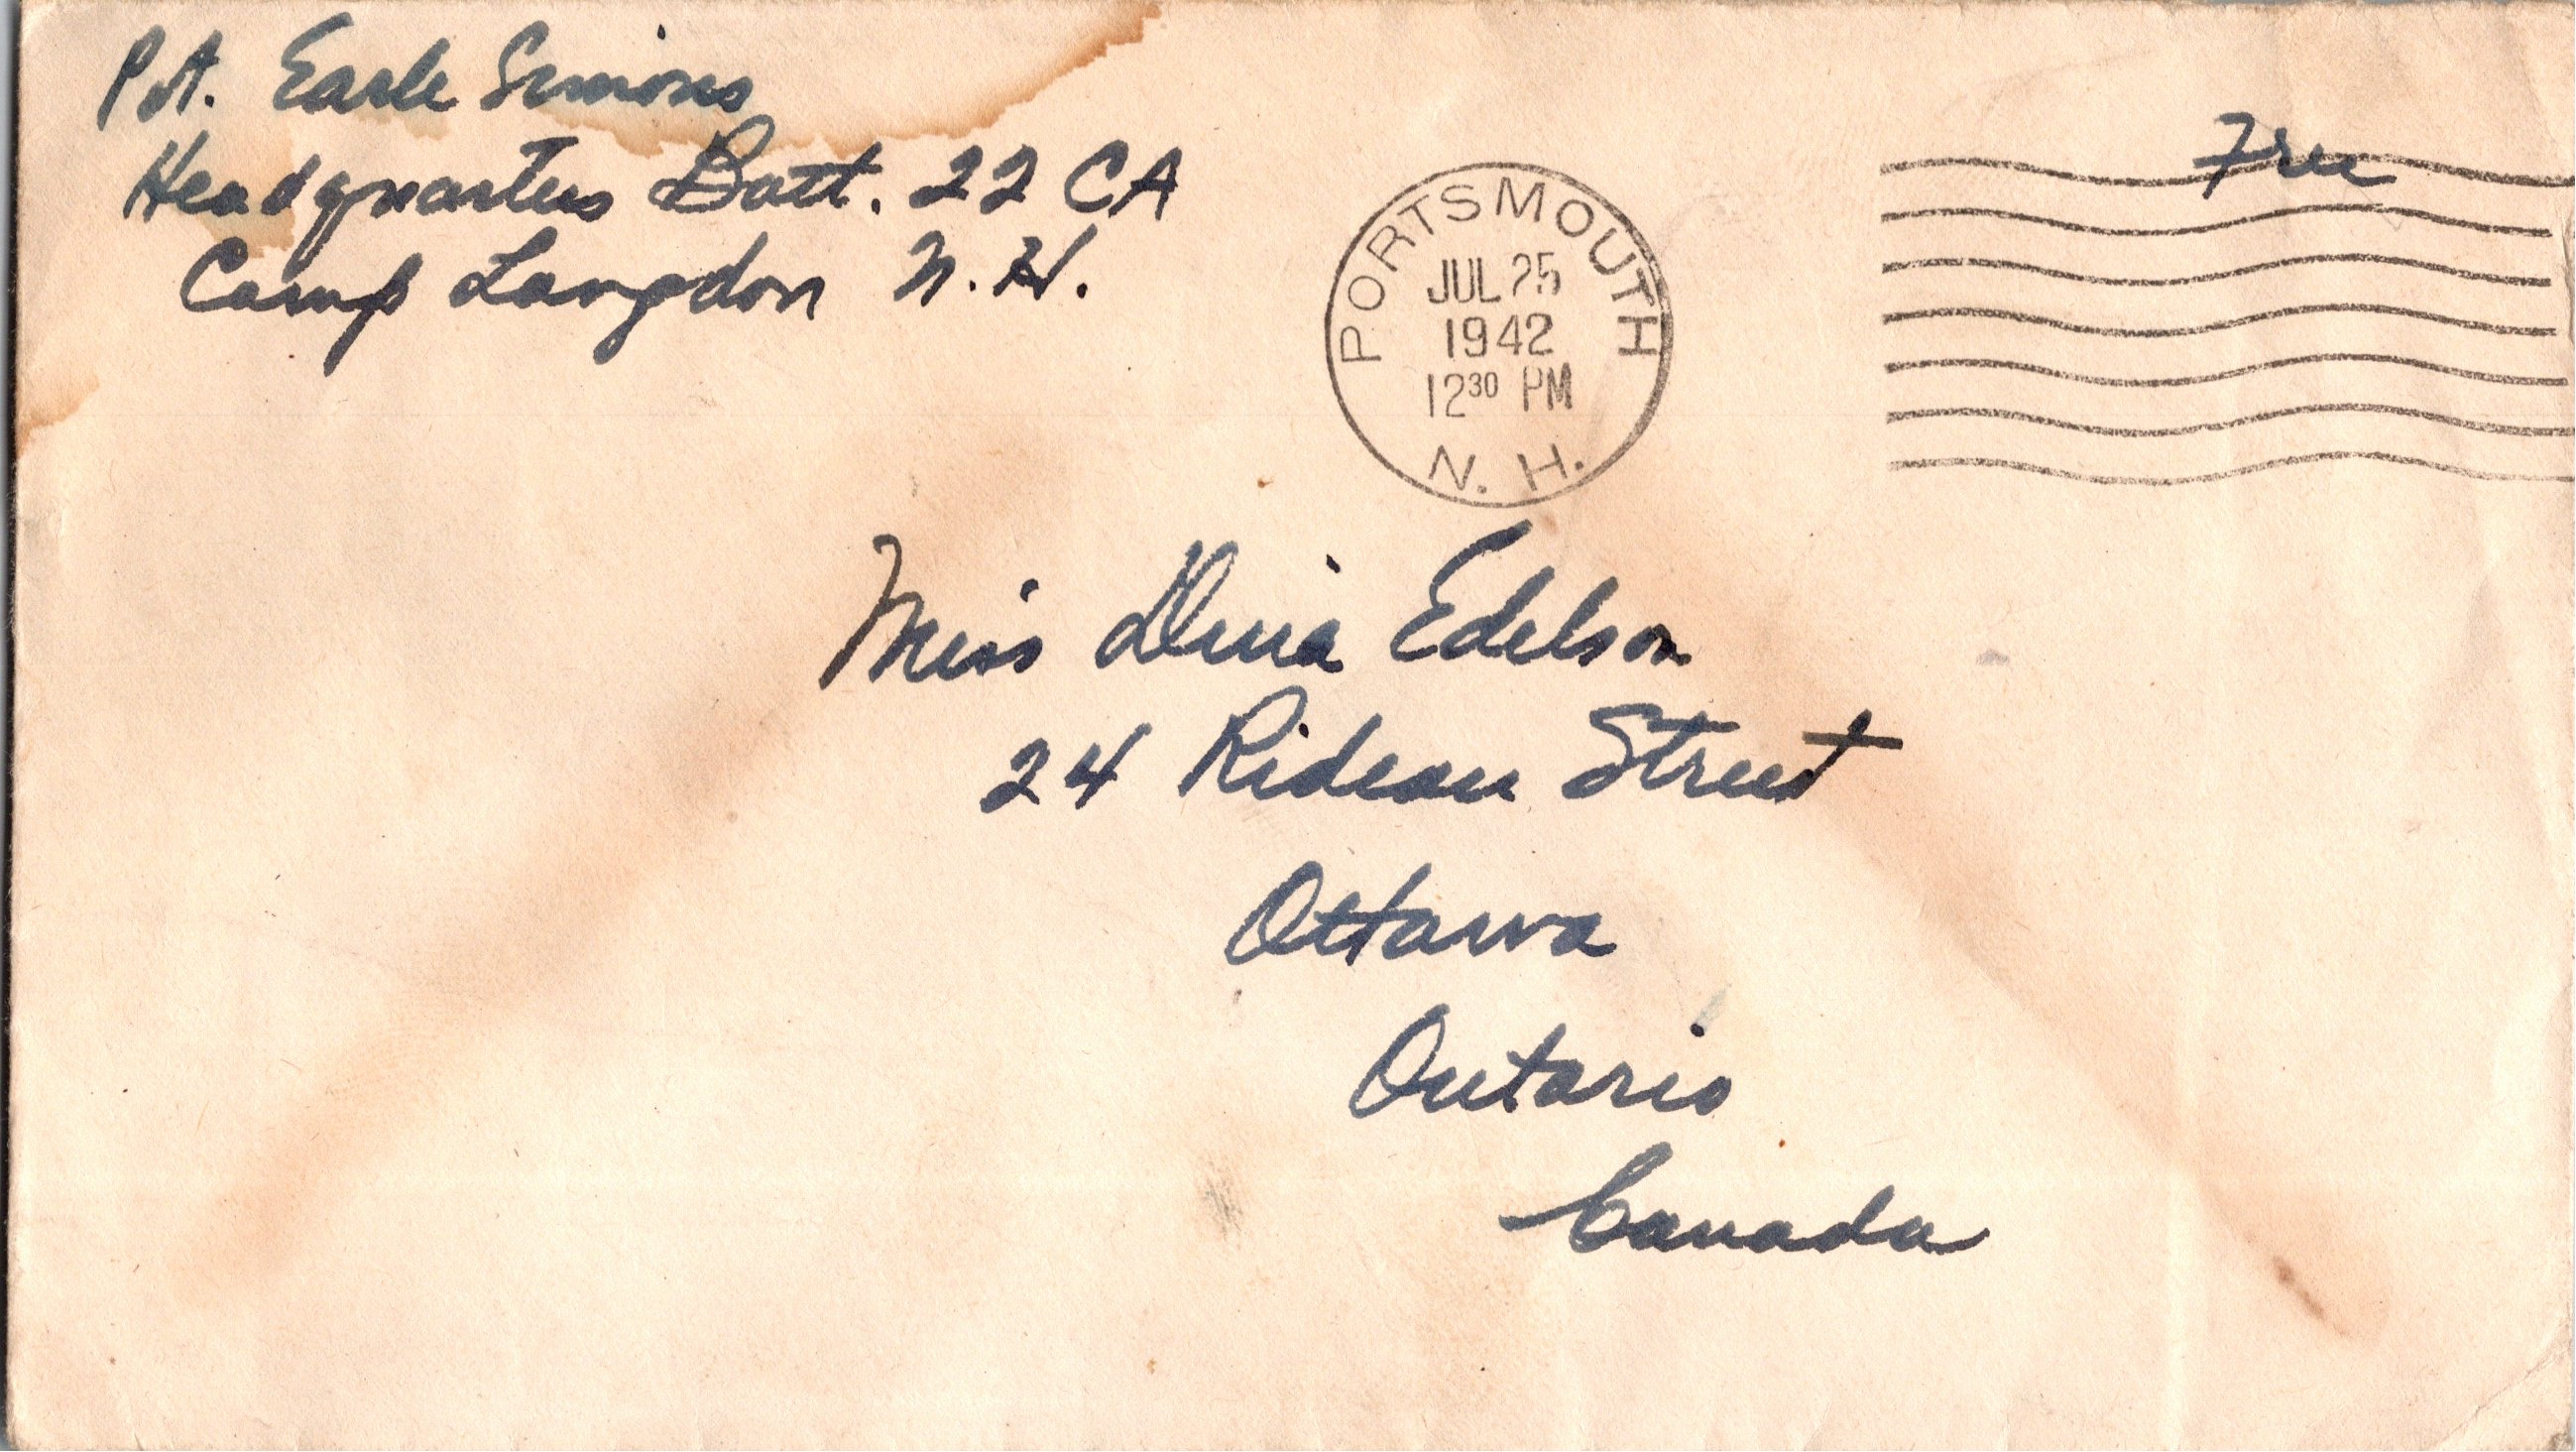 Pvt. Earle Simons
Headquarters Batt. 22 CA
Camp Langdon N.H.
Free
PORTSMOUTH
JUL 25
1942
12³⁰ PM
N. H.
Miss Edelson
24 Rideau Street
Ottawa
Ontario
Canada